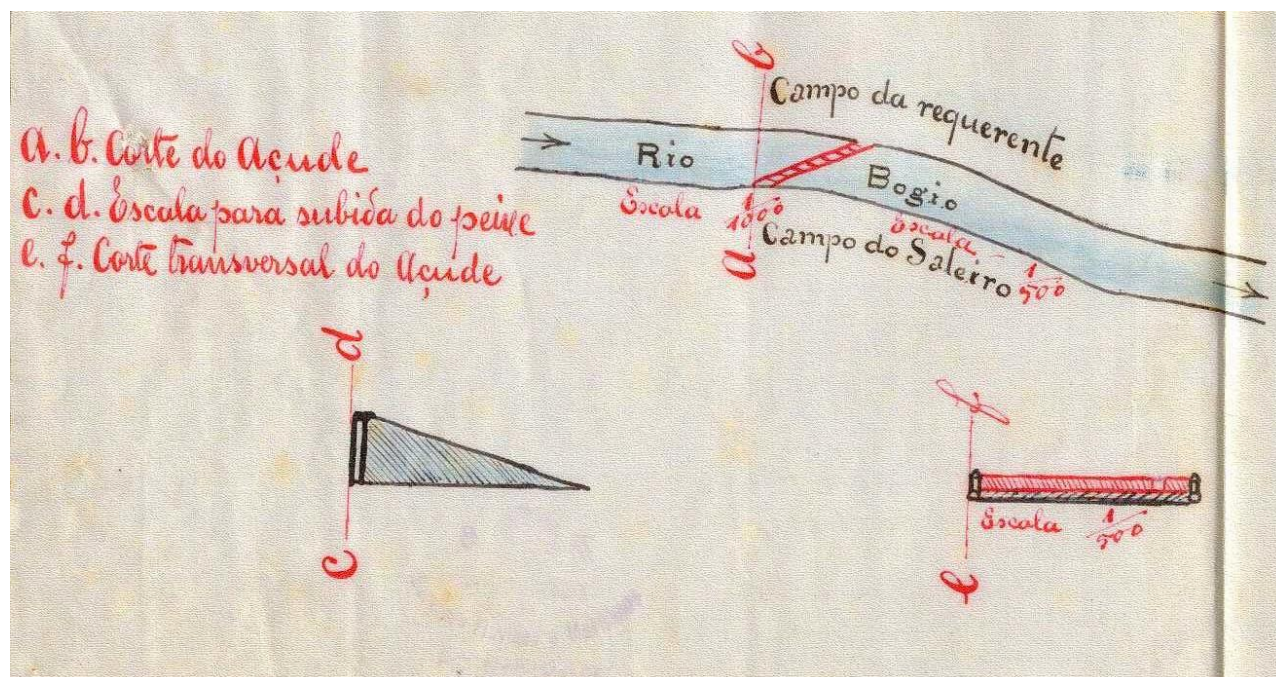 a. b. Corte do Açude
c. d. Escala para subida do peixe
e. f. Corte transversal do Açude
b
Campo da requerente
Rio
Bogio
Escala 1/1000
Escala 1/500
a
Campo do Saleiro
d
c
f
Escala 1/500
e